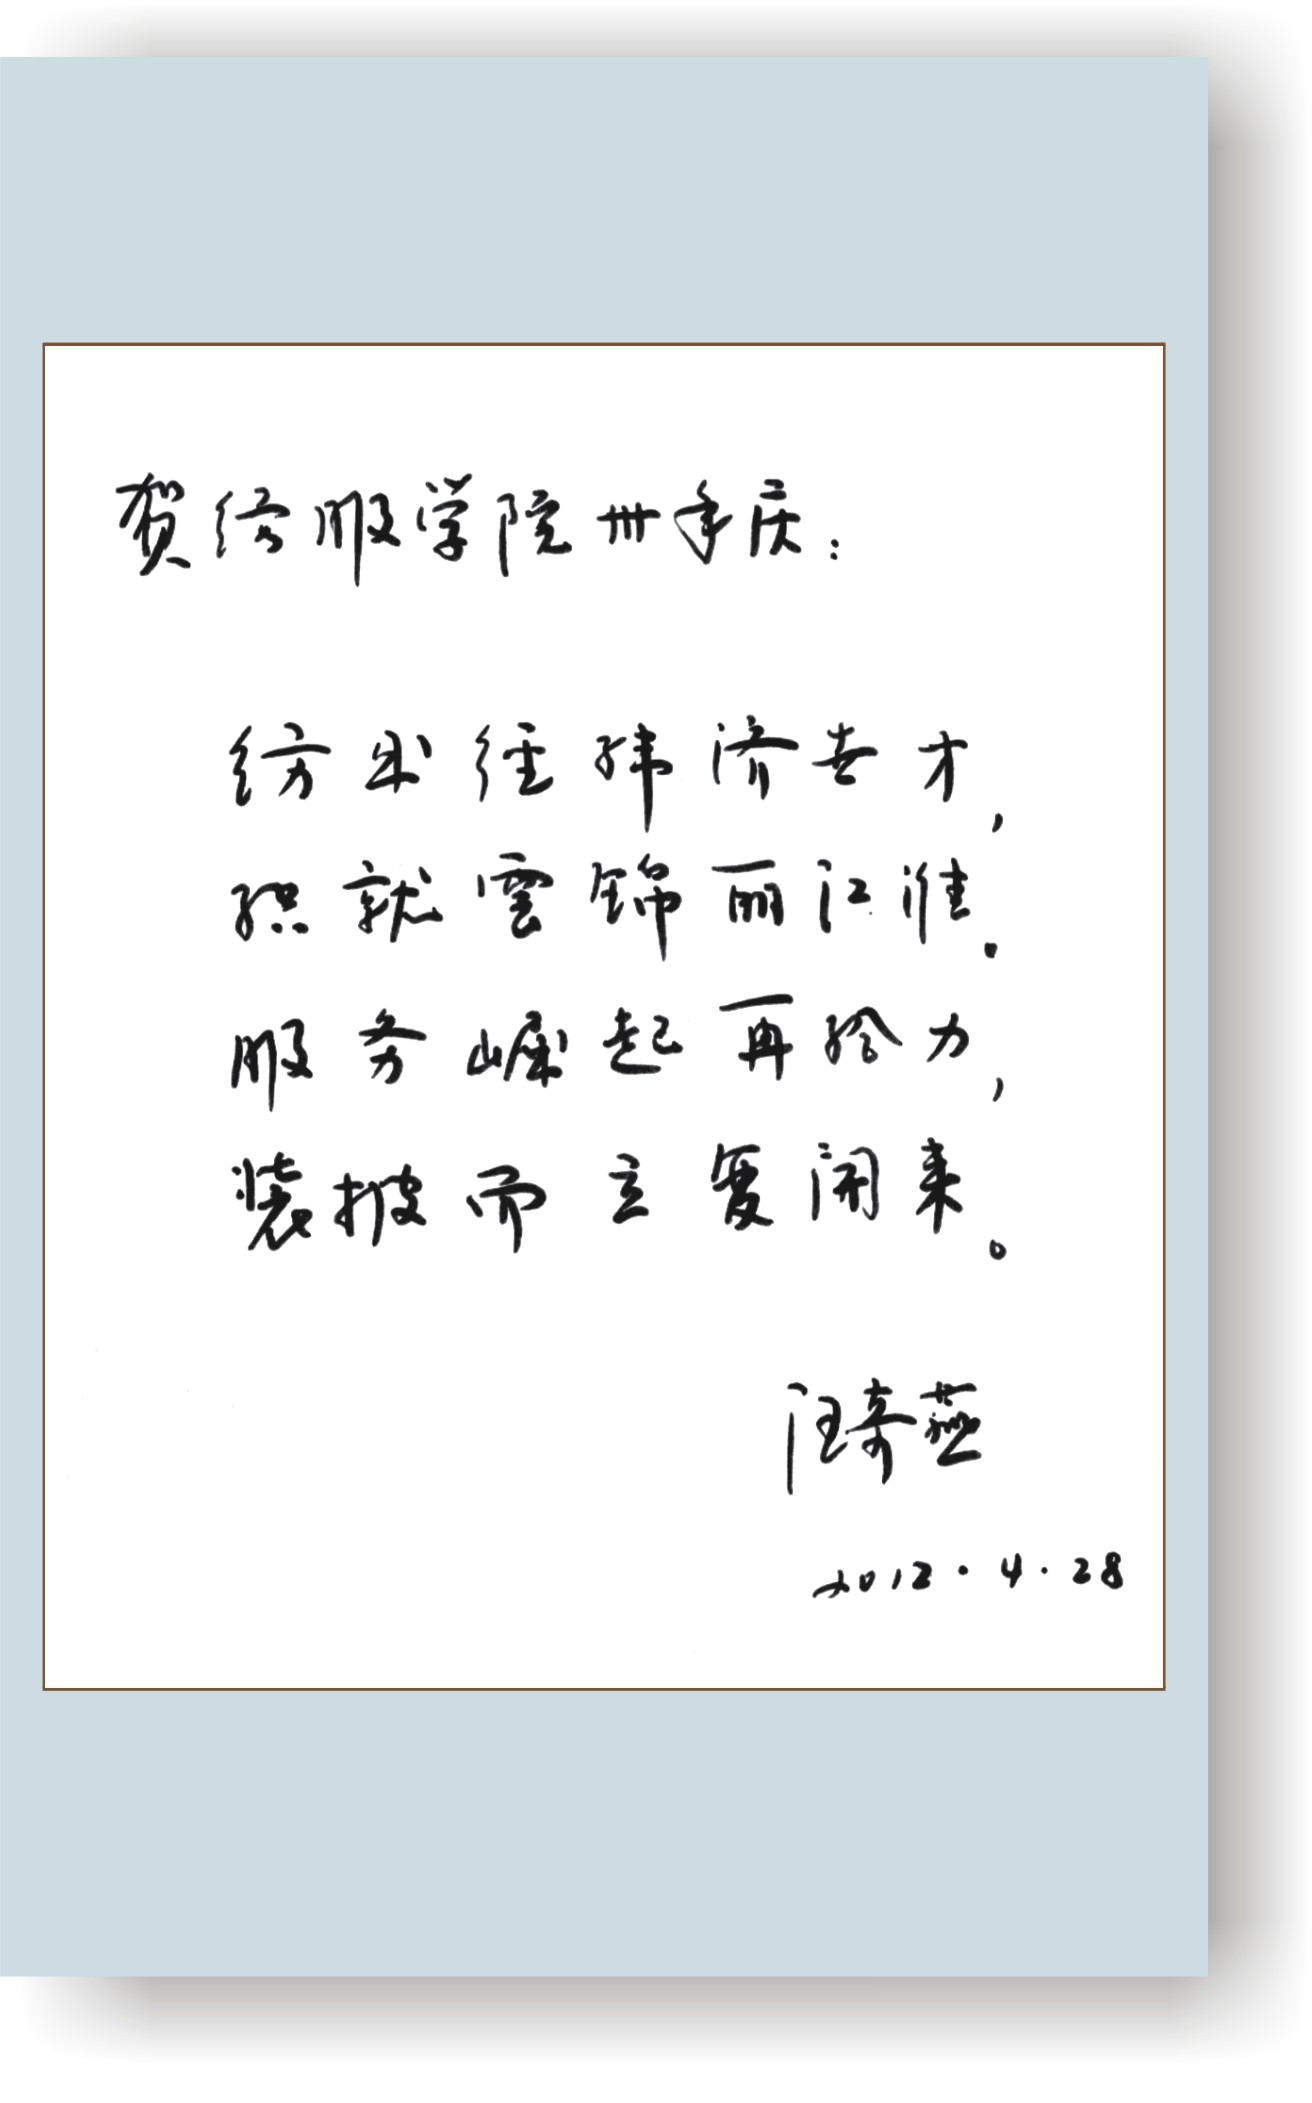 贺纺服学院卅年庆：
纺经纬济世才，
织就雲锦丽江淮。
服务崛起再给力，
装披而立复開来。
汪奇燕
2012·4·28